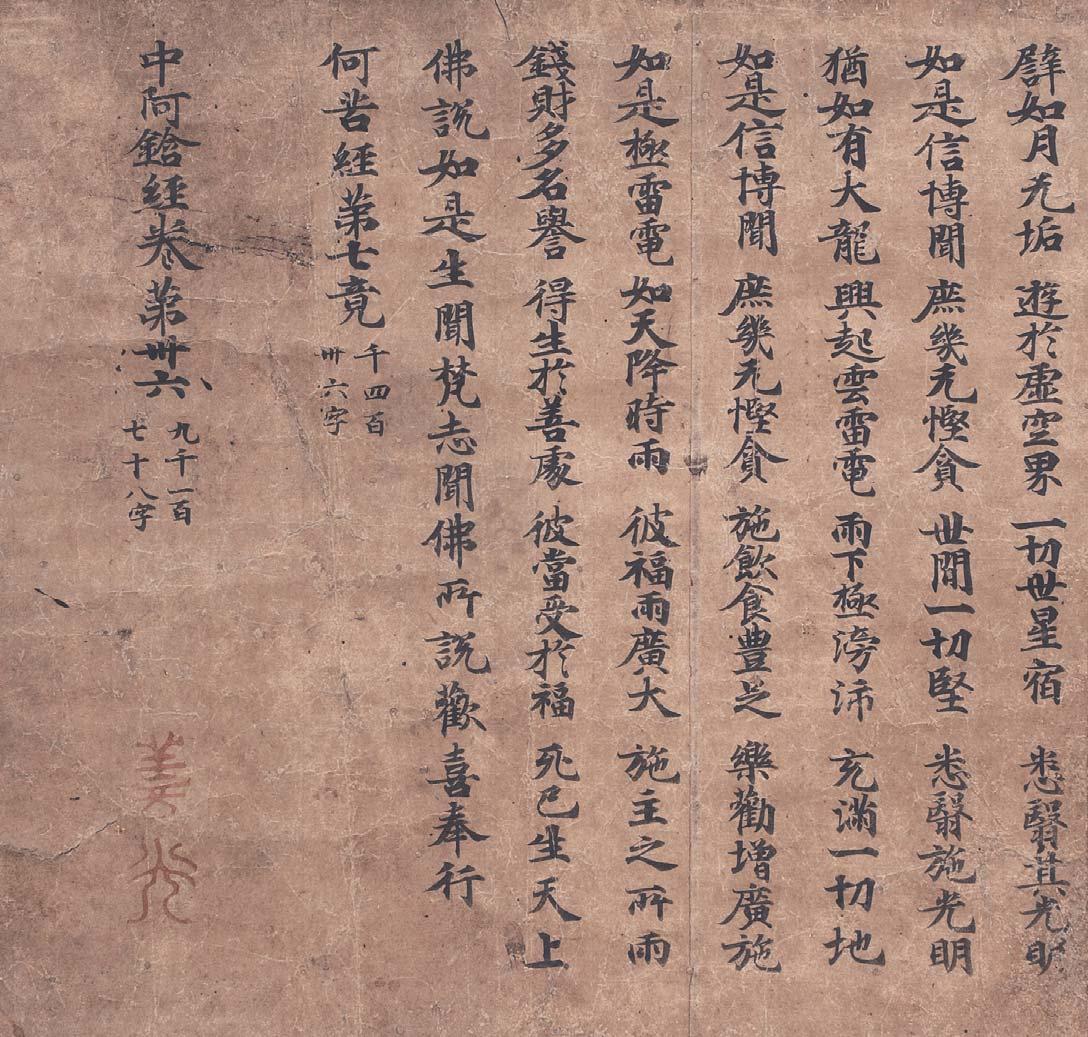 譬如月无垢 遊於虛空界 一切世星宿 悉翳其光明
如是信博聞 庶幾无慳貪 世間一切慳 悉翳施光明
猶如有大龍 興起雲雷電 雨下極滂沛 充滿一切地
如是信博聞 庶幾无慳貪 施飲食豊足 樂勸增廣施
如是極雷電 如天降時雨 彼福雨廣大 施主之所雨
錢財多名譽 得生於善處 彼當受於福 死已生天上
佛說如是生聞梵志聞佛所說歡喜奉行
何苦經第七竟 千四百
卅六字
中阿鋡經卷第卅六 九千一百
七十八字